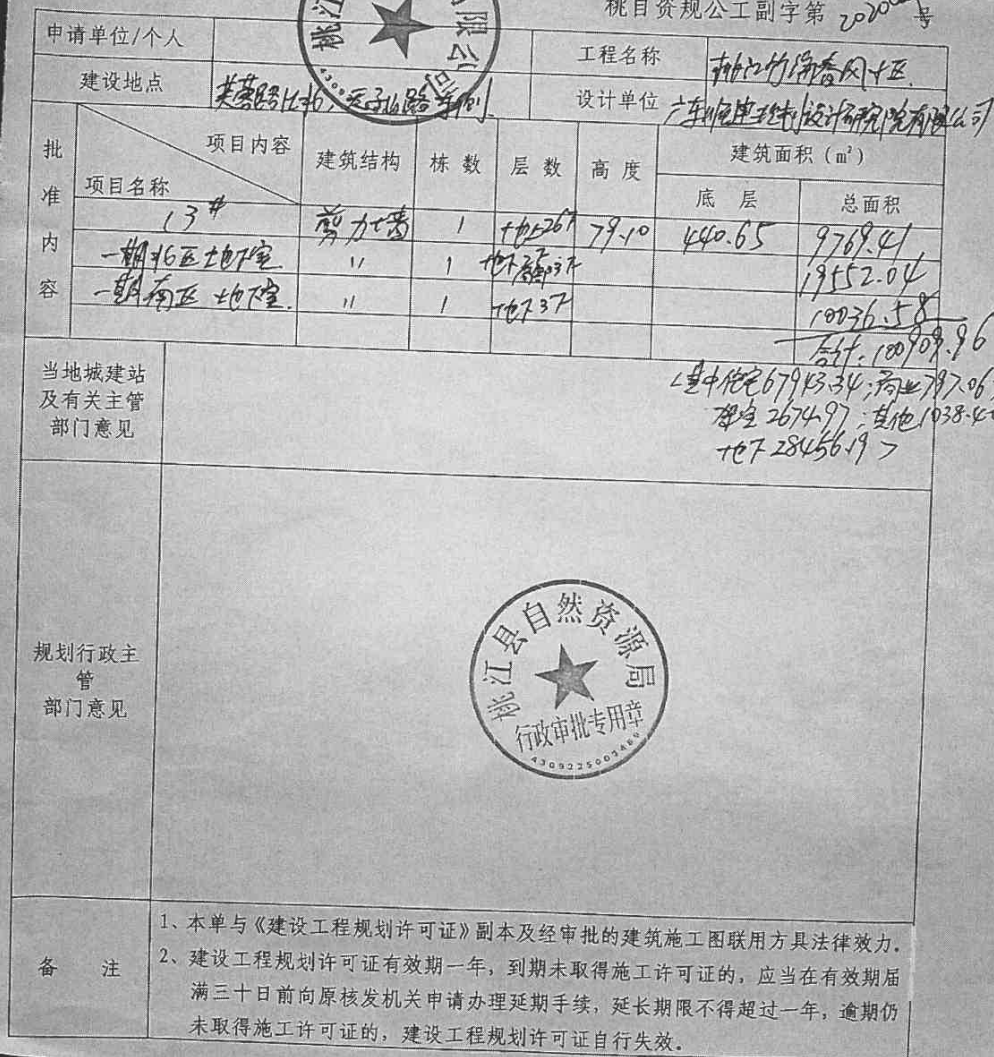 桃自资规公工副字第 2020 号
申请单位/个人
工程名称
建设地点
芙蓉路以北，天子山路东侧
设计单位
批准内容
项目内容
项目名称
建筑结构
栋数
层数
高度
建筑面积（㎡）
底层
总面积
13# 剪力墙 1 地上26F 79.10 440.65 9769.41
一期北区地下室 〃 1 19552.04
一期南区地下室 〃 1 地下3F 10036.58
合计：100909.96
当地城建站
及有关主管
部门意见
<其中住宅67943.34；商业797.06
2674.97；其他1038.4
地下28456.19>
规划行政主
管
部门意见
桃江县自然资源局
行政审批专用章
备 注
1、本单与《建设工程规划许可证》副本及经审批的建筑施工图联用方具法律效力.
2、建设工程规划许可证有效期一年，到期未取得施工许可证的，应当在有效期届
满三十日前向原核发机关申请办理延期手续，延长期限不得超过一年，逾期仍
未取得施工许可证的，建设工程规划许可证自行失效。